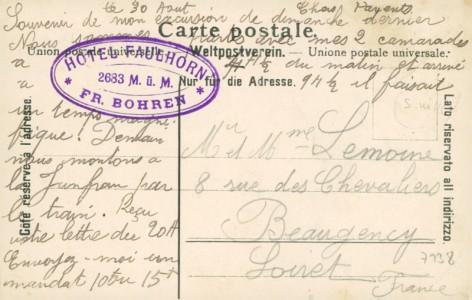 le 30 Aout Chers Parents
Souvenir de mon excursion de dimanche dernier
Carte postale.
Nous sommes partis avec mes 2 camarades
Union postale universelle. Weltpostverein. — Unione postale universale.
à du matin et arrivé
Nur für die Adresse. 9h½ il faisait
HOTEL FAULHORN
2683 M. ü. M.
FR. BOHREN
un temps magni
fique. Demain
nous montons à
la Jungfrau par
le train. Reçu
votre lettre du 20 At
Envoyez-moi un
mandat 10 ou 15f
Côté réservé à l'adresse.
Lato riservato all indirizzo.
Mr et Mme Lemoine
8 rue des Chevaliers
Beaugency
Loiret
France
7738